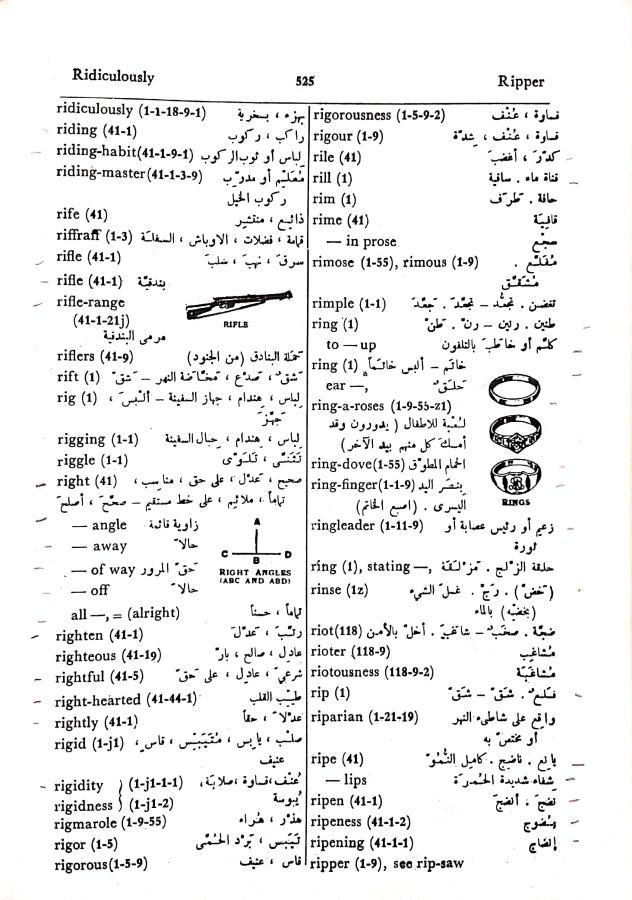 Ridiculously 525 Ripper
ridiculously (1-1-18-9-1) بهزء ، بسخرية
riding (41-1) راكب ، ركوب
riding-habit(41-1-9-1) لباس أو ثوب الركوب
riding-master(41-1-3-9) مُعَلِّم أو مدرّب
ركوب الخيل
rife (41) ذائع ، منتشر
riffraff (1-3) قمامة ، فضلات ، الاوباش ، السفلة
rifle (41-1) سرق ، نهبَ ، سَلَبَ
rifle (41-1) بندقيّة
rifle-range
(41-1-21j)
مرمى البندقية
RIFLE
riflers (41-9) حَمَلة البنادق (من الجنود)
rift (1) شقّ ، صدع ، مخاضة النهر – شقّ
rig (1) لباس ، هندام ، جهاز السفينة – ألبسَ ،
جهّز
rigging (1-1) لباس ، هندام ، حبال السفينة
riggle (1-1) تَثَنّى ، تلَوّى
right (41) صحيح ، عدل ، على حق ، مناسب ،
تماماً ، ملائم ، على خط مستقيم – صحّحَ ، أصلحَ
— angle زاوية قائمة
— away حالاً
— of way حقّ المرور
— off حالاً
A
C D
B
RIGHT ANGLES
(ABC AND ABD)
all —, = (alright) تماماً ، حسناً
righten (41-1) رتّبَ ، عدّلَ
righteous (41-19) عادل ، صالح ، بارّ
rightful (41-5) شرعيّ ، عادل ، على حقّ
right-hearted (41-44-1) طيّب القلب
rightly (41-1) عدلاً ، حقاً
rigid (1-j1) صلب ، يابس ، مُتَيَبّس ، قاس ،
عنيف
rigidity (1-j1-1-1) عُنف ، قساوة ، صلابة ،
rigidness (1-j1-2) يُبوسة
rigmarole (1-9-55) هذر ، هُراء
rigor (1-5) تَيَبّس ، بَرْد الحُمّى
rigorous(1-5-9) قاس ، عنيف
rigorousness (1-5-9-2) قساوة ، عُنْف
rigour (1-9) قساوة ، عُنْف ، شدّة
rile (41) كدّرَ ، أغضبَ
rill (1) قناة ماء . ساقية
rim (1) حافة . طَرَف
rime (41) قافية
— in prose سَجع
rimose (1-55), rimous (1-9) مُفَلّع .
مُشَقّق
rimple (1-1) تغضن . تجعّد – تجعّدَ . جعّدَ
ring (1) طنين . رنين – رنّ . طنّ
to — up كلّم أو خاطبَ بالتلفون
ring (1) خاتم – ألبس خاتماً
ear —, حَلَقٌ
ring-a-roses (1-9-55-z1)
لُعبة للاطفال ( يدورون وقد
أمسك كل منهم بيد الآخر)
ring-dove(1-55) الحمام المطوّق
ring-finger(1-1-9) بنصر اليد
اليسرى . (اصبع الخاتم)
RINGS
ringleader (1-11-9) زعيم أو رئيس عصابة أو
ثورة
ring (1), stating —, حلقة الزلج . مَزْلَقة
rinse (1z) (خَضّ) . رَجّ . غسلَ الشيء
(بخضّه) بالماء
riot(118) ضجّة . صخبٌ – شاغبَ . أخلّ بالأمن
rioter (118-9) مُشاغب
riotousness (118-9-2) مُشاغَبة
rip (1) فَلع . شقّ – شَقّ
riparian (1-21-19) واقع على شاطىء النهر
أو مختصّ به
ripe (41) يانع . ناضج . كامل النُّموّ
— lips شفاه شديدة الحُمرة
ripen (41-1) نضجَ . أنضجَ
ripeness (41-1-2) نضوج
ripening (41-1-1) إنضاج
ripper (1-9), see rip-saw